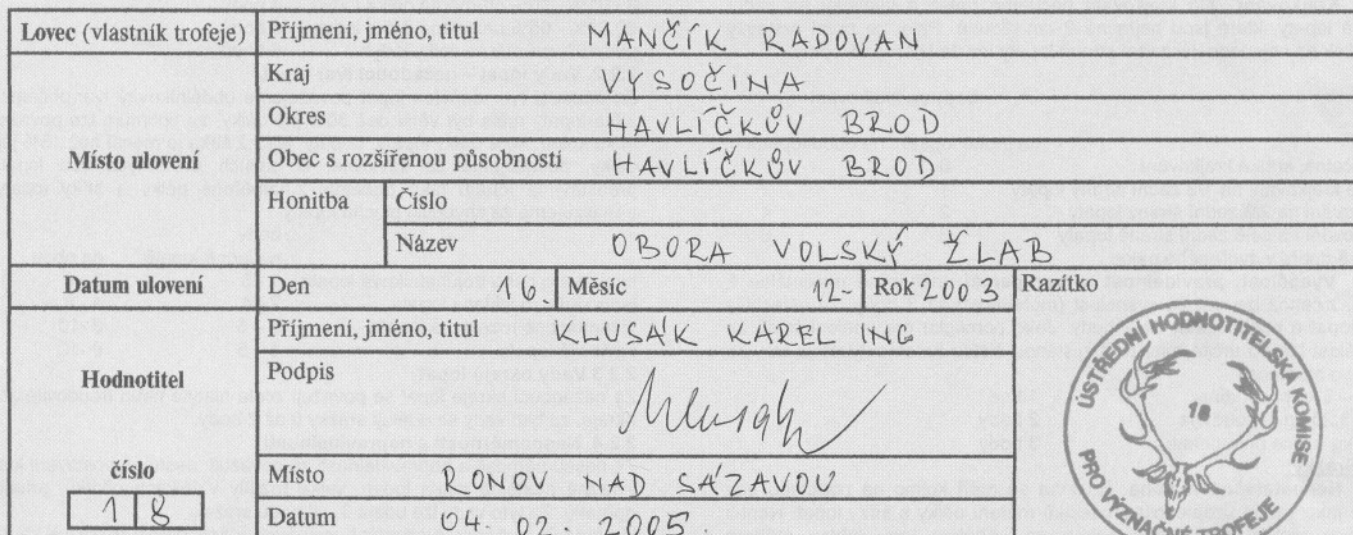 Lovec (vlastník trofeje) Příjmení, jméno, titul MANČÍK RADOVAN
Místo ulovení
Kraj VYSOČINA
Okres HAVLÍČKŮV BROD
Obec s rozšířenou působností HAVLÍČKŮV BROD
Honitba Číslo
Název OBORA VOLSKÝ ŽLAB
Datum ulovení Den 16. Měsíc 12. Rok 2003 Razítko
Hodnotitel
Příjmení, jméno, titul KLUSÁK KAREL ING
Podpis
číslo
18
Místo RONOV NAD SÁZAVOU
Datum 04. 02. 2005.
ÚSTŘEDNÍ HODNOTITELSKÁ KOMISE
18
PRO VÝZNAČNÉ TROFEJE